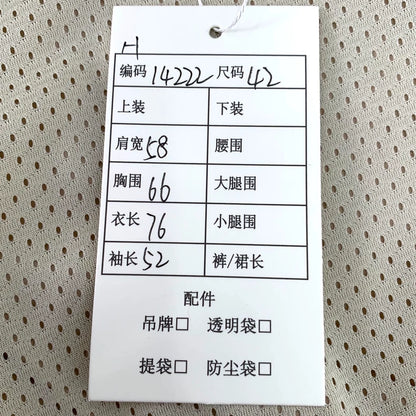 编码 14222 尺码 42
上装 下装
肩宽 58 腰围
胸围 66 大腿围
衣长 76 小腿围
袖长 52 裤/裙长
配件
吊牌□ 透明袋□
提袋□ 防尘袋□